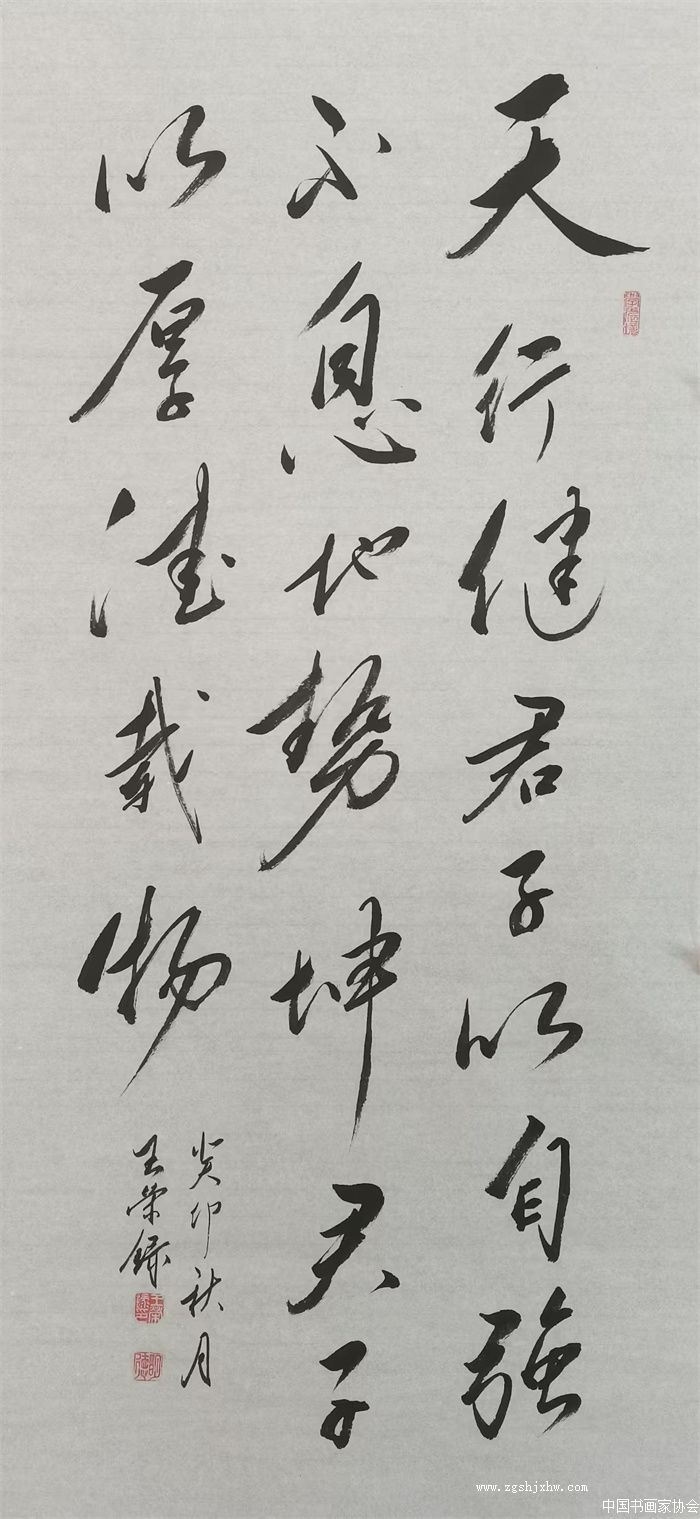 天行健君子以自強
不息地势坤君子
以厚德载物
癸卯秋月
王荣錄
www.zgshjxhw.com
中国书画家协会